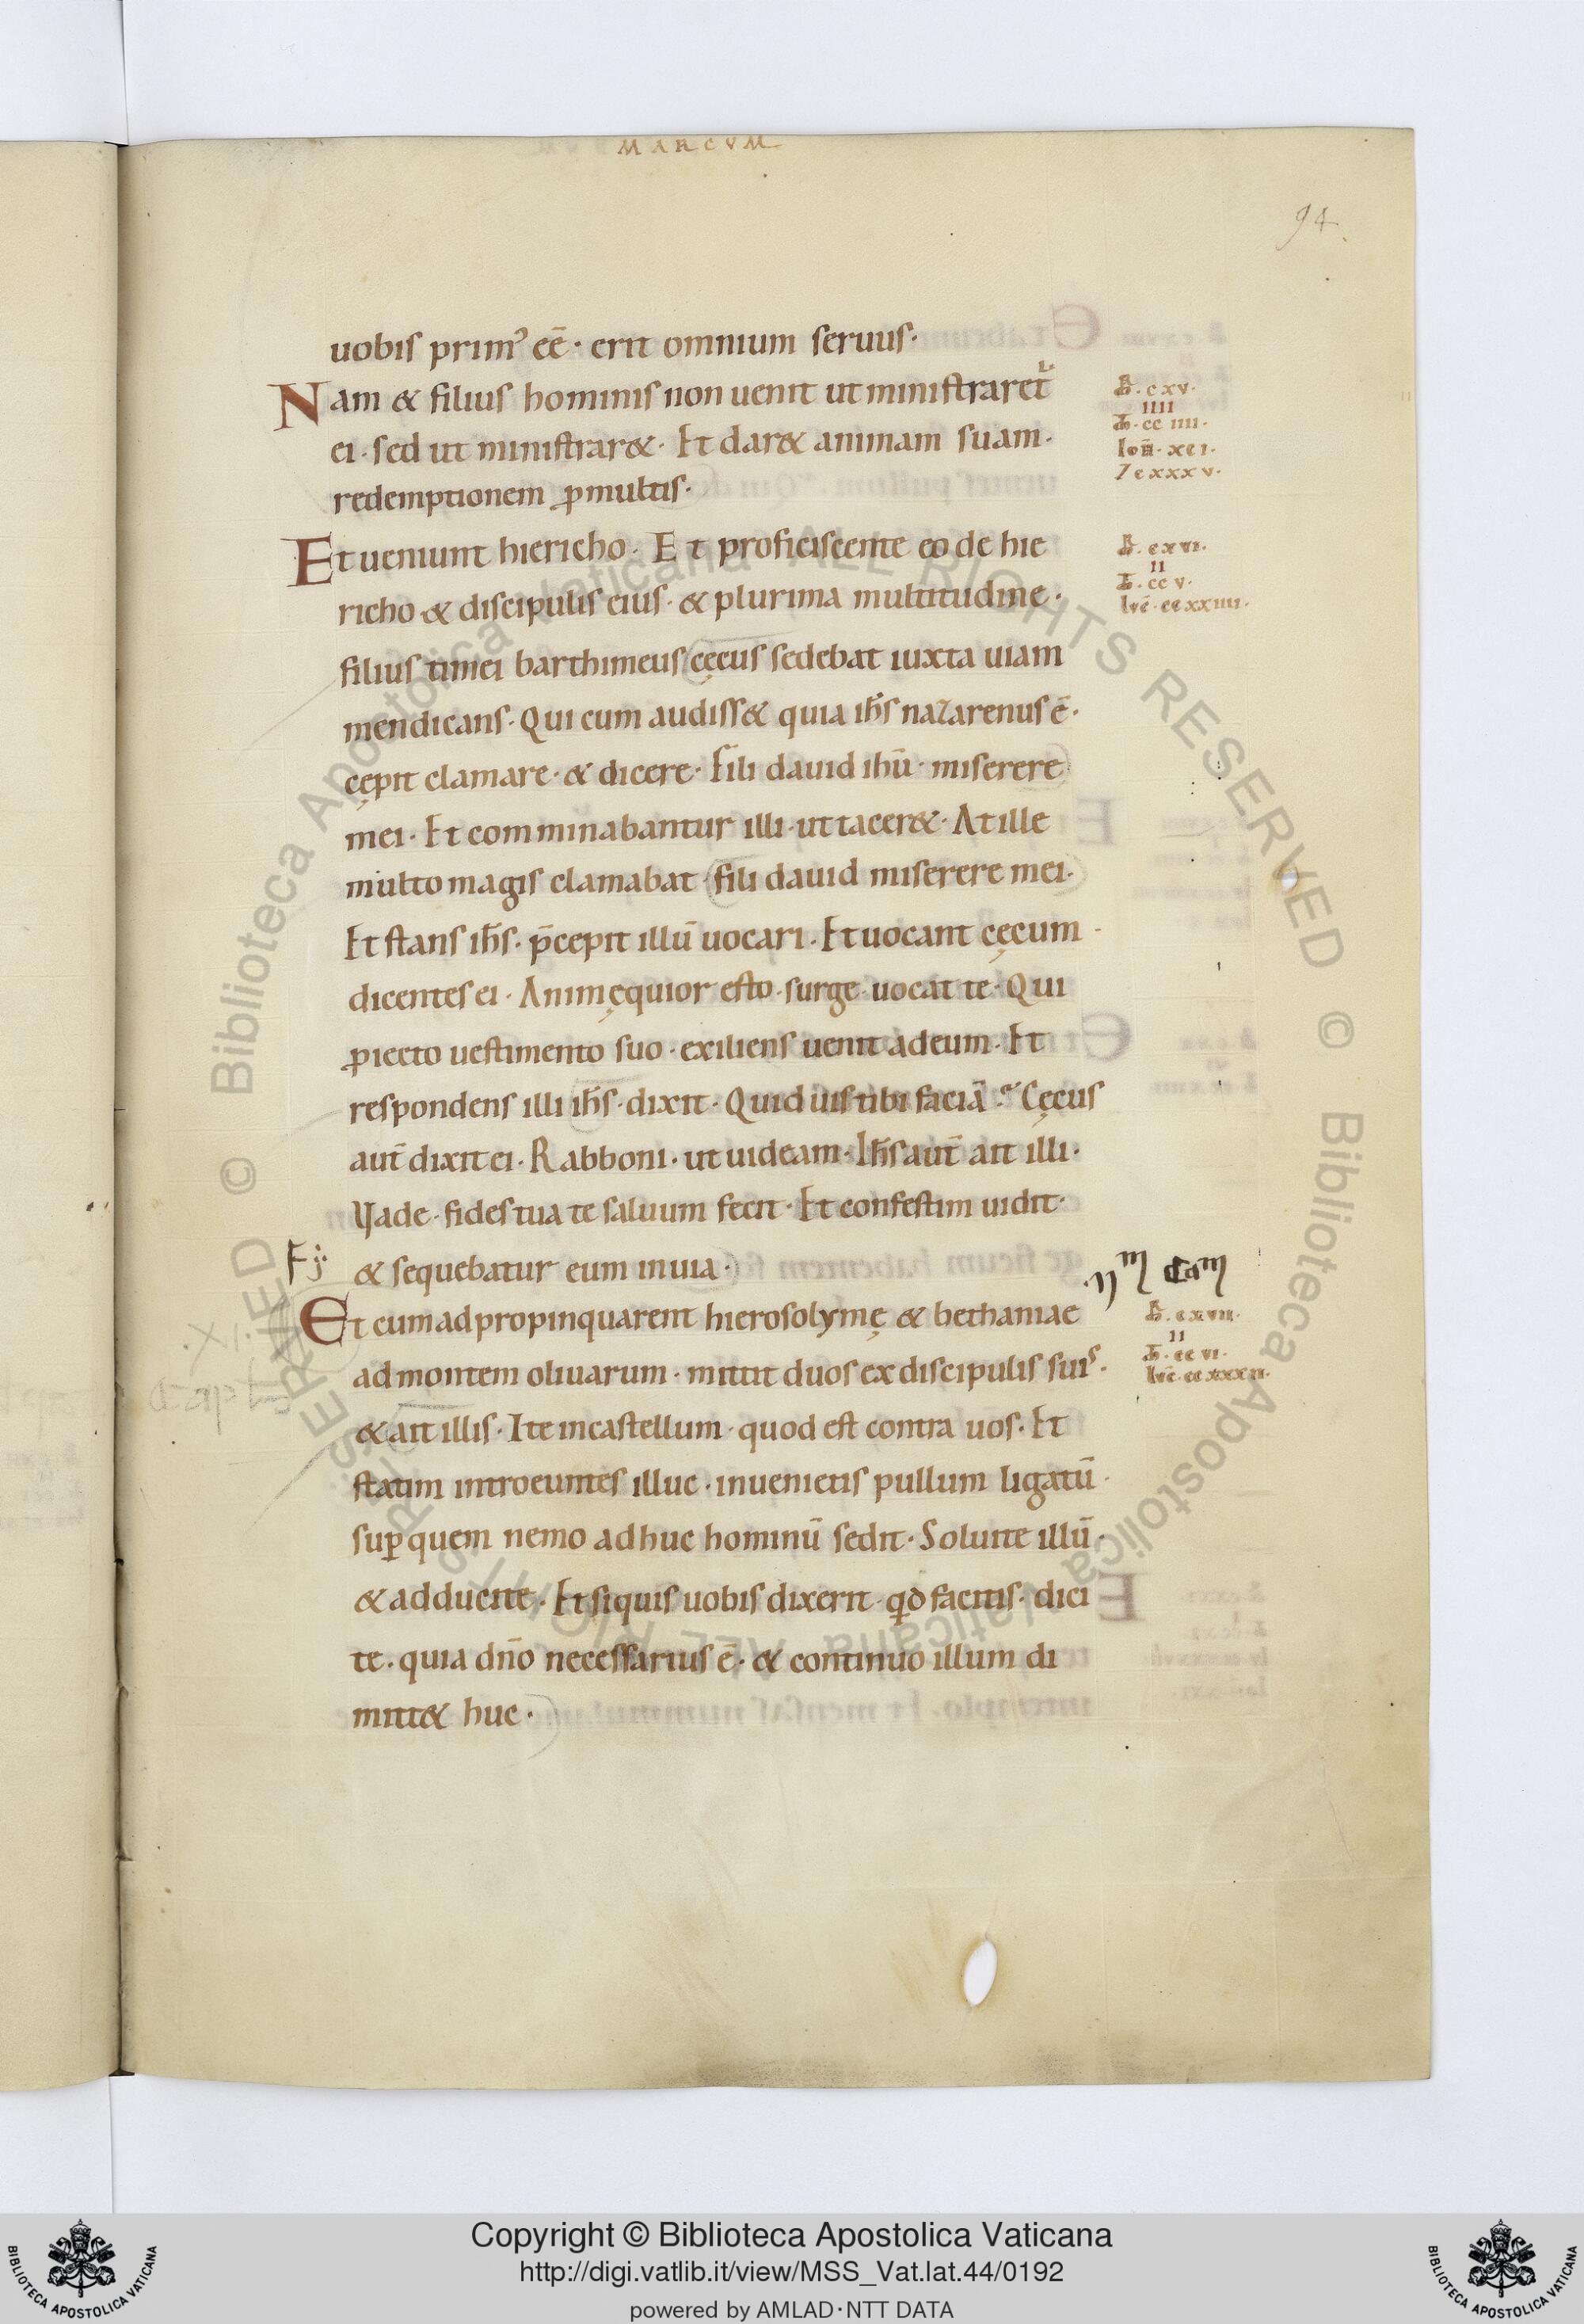 MARCVM
94.
uobis prim᾽ eē· erit omnium seruus·
Nam & filius hominis non uenit ut ministraret̄
ei· sed ut ministrar&· Et dar& animam suam·
redemptionem ꝓmultis·
Et ueniunt hiericho· Et proficiscente eo de hie
richo & discipulis eius· & plurima multitudine·
filius timei barthimeus cęcus sedebat iuxta uiam
mendicans· Qui cum audiss& quia ih̄s nazarenus ē·
cępit clamare· & dicere· Fili dauid ihū· miserere
mei· Et comminabantur illi· ut tacer&· At ille
multo magis clamabat· fili dauid miserere mei·
Et stans ih̄s· p̄cepit illū uocari· Et uocant cęcum
dicentes ei· Animęquior esto· surge· uocat te· Qui
ꝓiecto uestimento suo· exiliens uenit ad eum· Et
respondens illi ih̄s· dixit· Quid uis tibi faciā? Cęcus
aut̄ dixit ei· Rabboni· ut uideam· Ih̄s aut̄ ait illi·
Vade· fides tua te saluum fecit· Et confestim uidit·
& sequebatur eum in uia·
Et cum adpropinquarent hierosolymę & bethaniae
ad montem oliuarum· mittit duos ex discipulis suis·
& ait illis· Ite in castellum· quod est contra uos· Et
statim introeuntes illuc· inuenietis pullum ligatū·
suꝑ quem nemo adhuc hominū sedit· Soluite illū·
& adducite· Et si quis uobis dixerit· qđ facitis· dici
te· quia dn̄o necessarius ē· & continuo illum di
mitt& huc·
cxv·
IIII
cc IIII·
Ioh̄· xcI·
7 cxxxv·
cxvI·
II
cc v·
lvc̄· ccxxIIII·
cxvII·
II
cc vI·
lvc̄· ccxxxII·
·XI·
Capl
Copyright © Biblioteca Apostolica Vaticana
http://digi.vatlib.it/view/MSS_Vat.lat.44/0192
powered by AMLAD·NTT DATA
BIBLIOTECA APOSTOLICA VATICANA
BIBLIOTECA APOSTOLICA VATICANA
© Biblioteca Apostolica Vaticana ALL RIGHTS RESERVED © Biblioteca Apostolica Vaticana ALL RIGHTS RESERVED